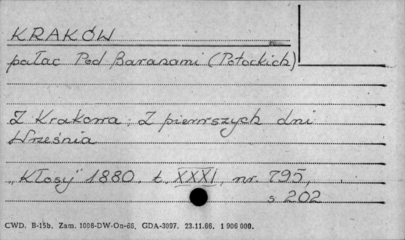 KRAKÓW
pałac Pod Baranami (Potockich)
Z Krakowa; Z pierwszych dni
Września
„Kłosy" 1880. t. XXXI, nr. 795,
s. 202
CWD. B-15b. Zam. 1098-DW-On-66. GDA-3097. 23.11.66. 1 906 000.